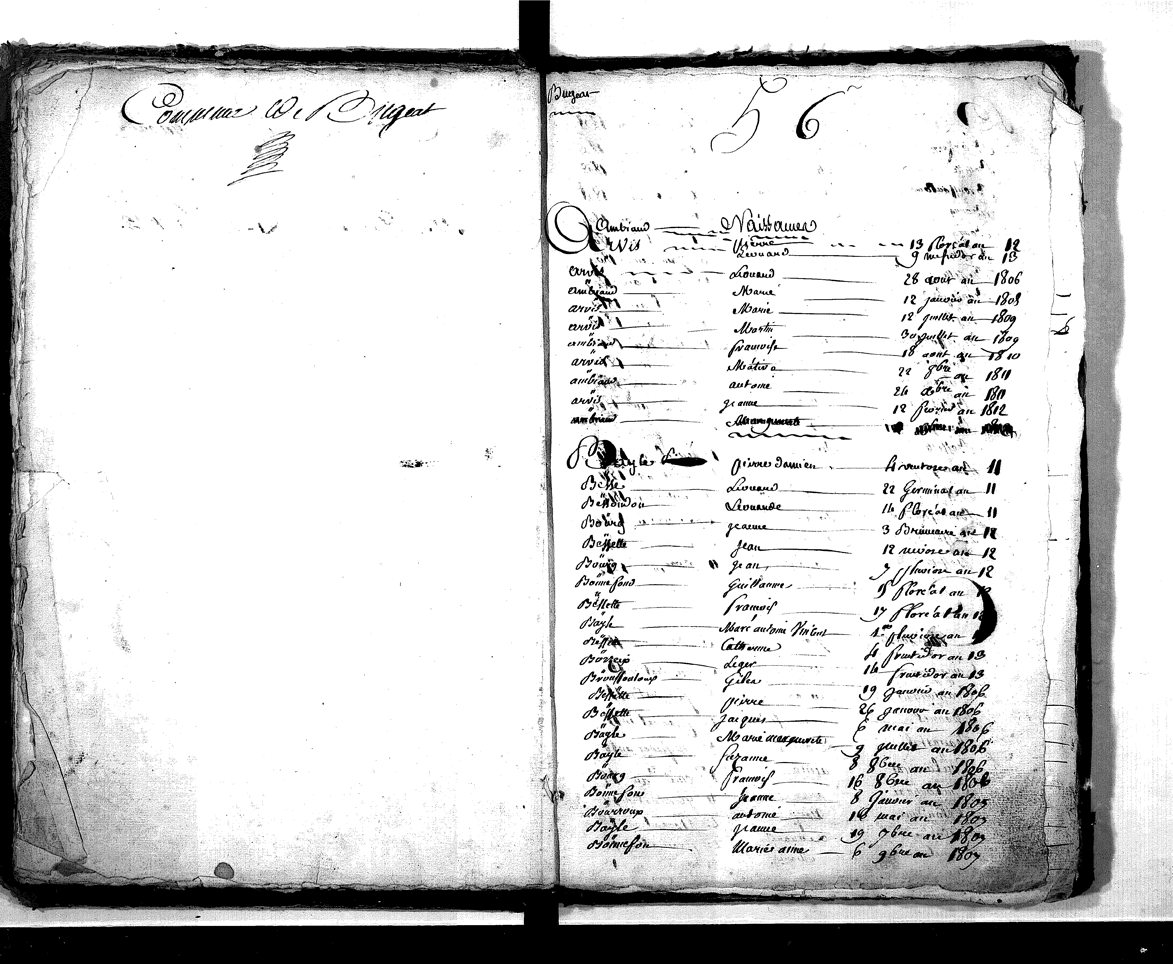 Commune De Bugeat
Bugeat
56
Naissances
ambiaud Pierre 13 floréal an 12
Arvis Léonard 9 messidor an 13
arvis Léonard 28 aout an 1806
ambiaud Marie 12 janvier an 1808
arvis Marie 12 juillet an 1809
arvis Martin 30 juillet an 1809
ambiaud françoise 18 aout an 1810
arvis 22 9bre an 1811
ambiaud antoine 24 an 1811
arvis jeanne 12 février an 1812
ambiaud Marguerite
Bayle pierre damien 4 ventose an 11
Besse Léonard 22 Germinal an 11
Léonarde 14 floréal an 11
Bourg jeanne 3 Brumaire an 12
Bessette jean 12 nivose an 12
Bourg jean 7 pluviose an 12
Bonnefond Guillaume 15 floréal an
Bessette françois 17 floréal an 12
Bayle Marc antoine Vincent 1er pluviose an
Bessette Catherine 4 fructidor an 13
Leger 14 fructidor an 13
Broussouloux Gilles 19 janvier an 1806
Bessette pierre 26 janvier an 1806
Bessette jacques 6 mai an 1806
Bayle Marie marguerite 9 juillet an 1806
Bayle Suzanne 8 8bre an 1806
Bourg François 16 8bre an 1806
Bonnefond jeanne 8 janvier an 1807
Bourroux antoine 16 mai an 1807
Bayle jeanne 19 7bre an 1807
Bonnefon Marie anne 6 9bre an 1807